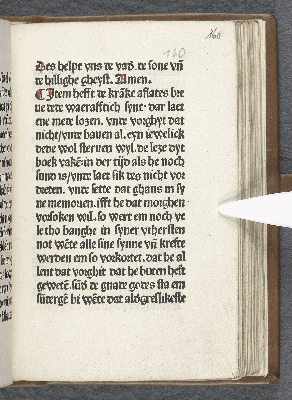 160
160
Des helpe vns de vad̄. de sone vn̄
de hillighe gheyst. Amen.
¶ Item hefft de krāke aflates bre
ue dede waerafftich synt. dar laet
ene mere lozen. vnde vorghyt dat
nicht/vnde bauen al. eyn iewelick
dede wol steruen wyl. de leze dyt
boek vakē in der tijd als he noch
sund is/vnde laet sik des nicht vor
dreten. vnde sette dat ghans in sy
ne memorien. ifft he dat morghen
vorsoken wil. so wert em noch ve
le tho hanghe in syner vthersten
not wēte alle sine synne vn̄ krefte
werden em so vorkortet. dat he al
lent dat vorghit dat he buten hefft
geweten. sūd̄ de gnade godes sta em
sūdergē bi wēte dat aldgreslikeste